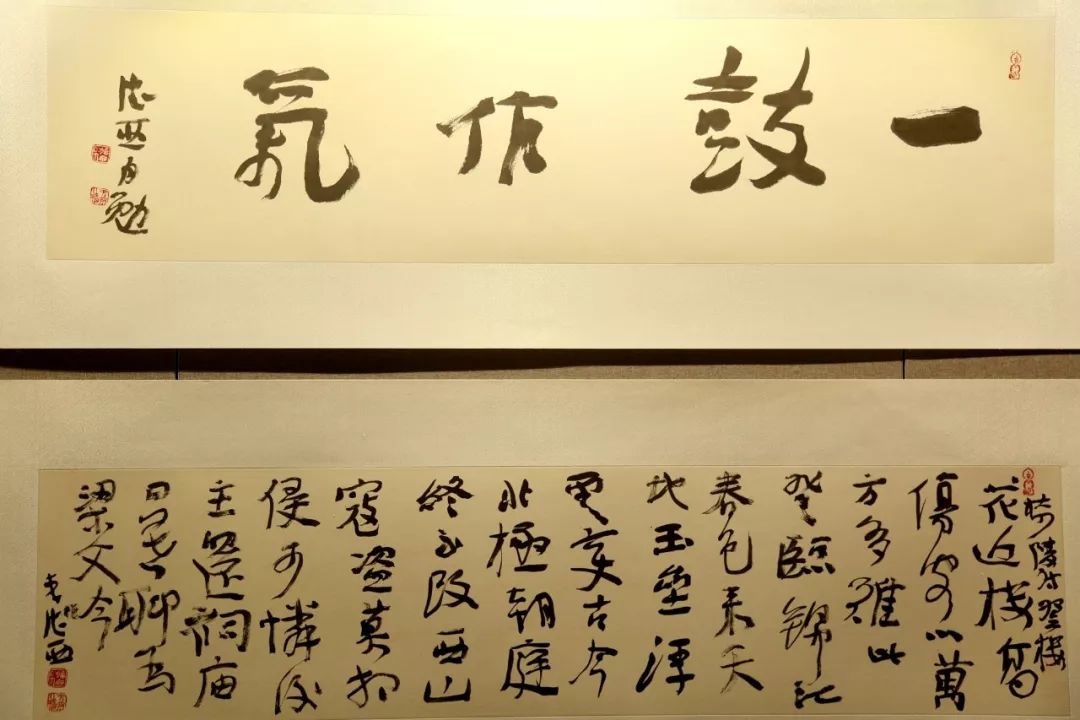 一鼓作氣
自勉
杜陵诗登楼
花近楼高
傷客心萬
方多難此
登臨錦江
春色来天
地玉壘浮
雲变古今
北極朝庭
終不改西山
寇盗莫相
侵可憐後
主還祠庙
日暮聊为
梁父吟